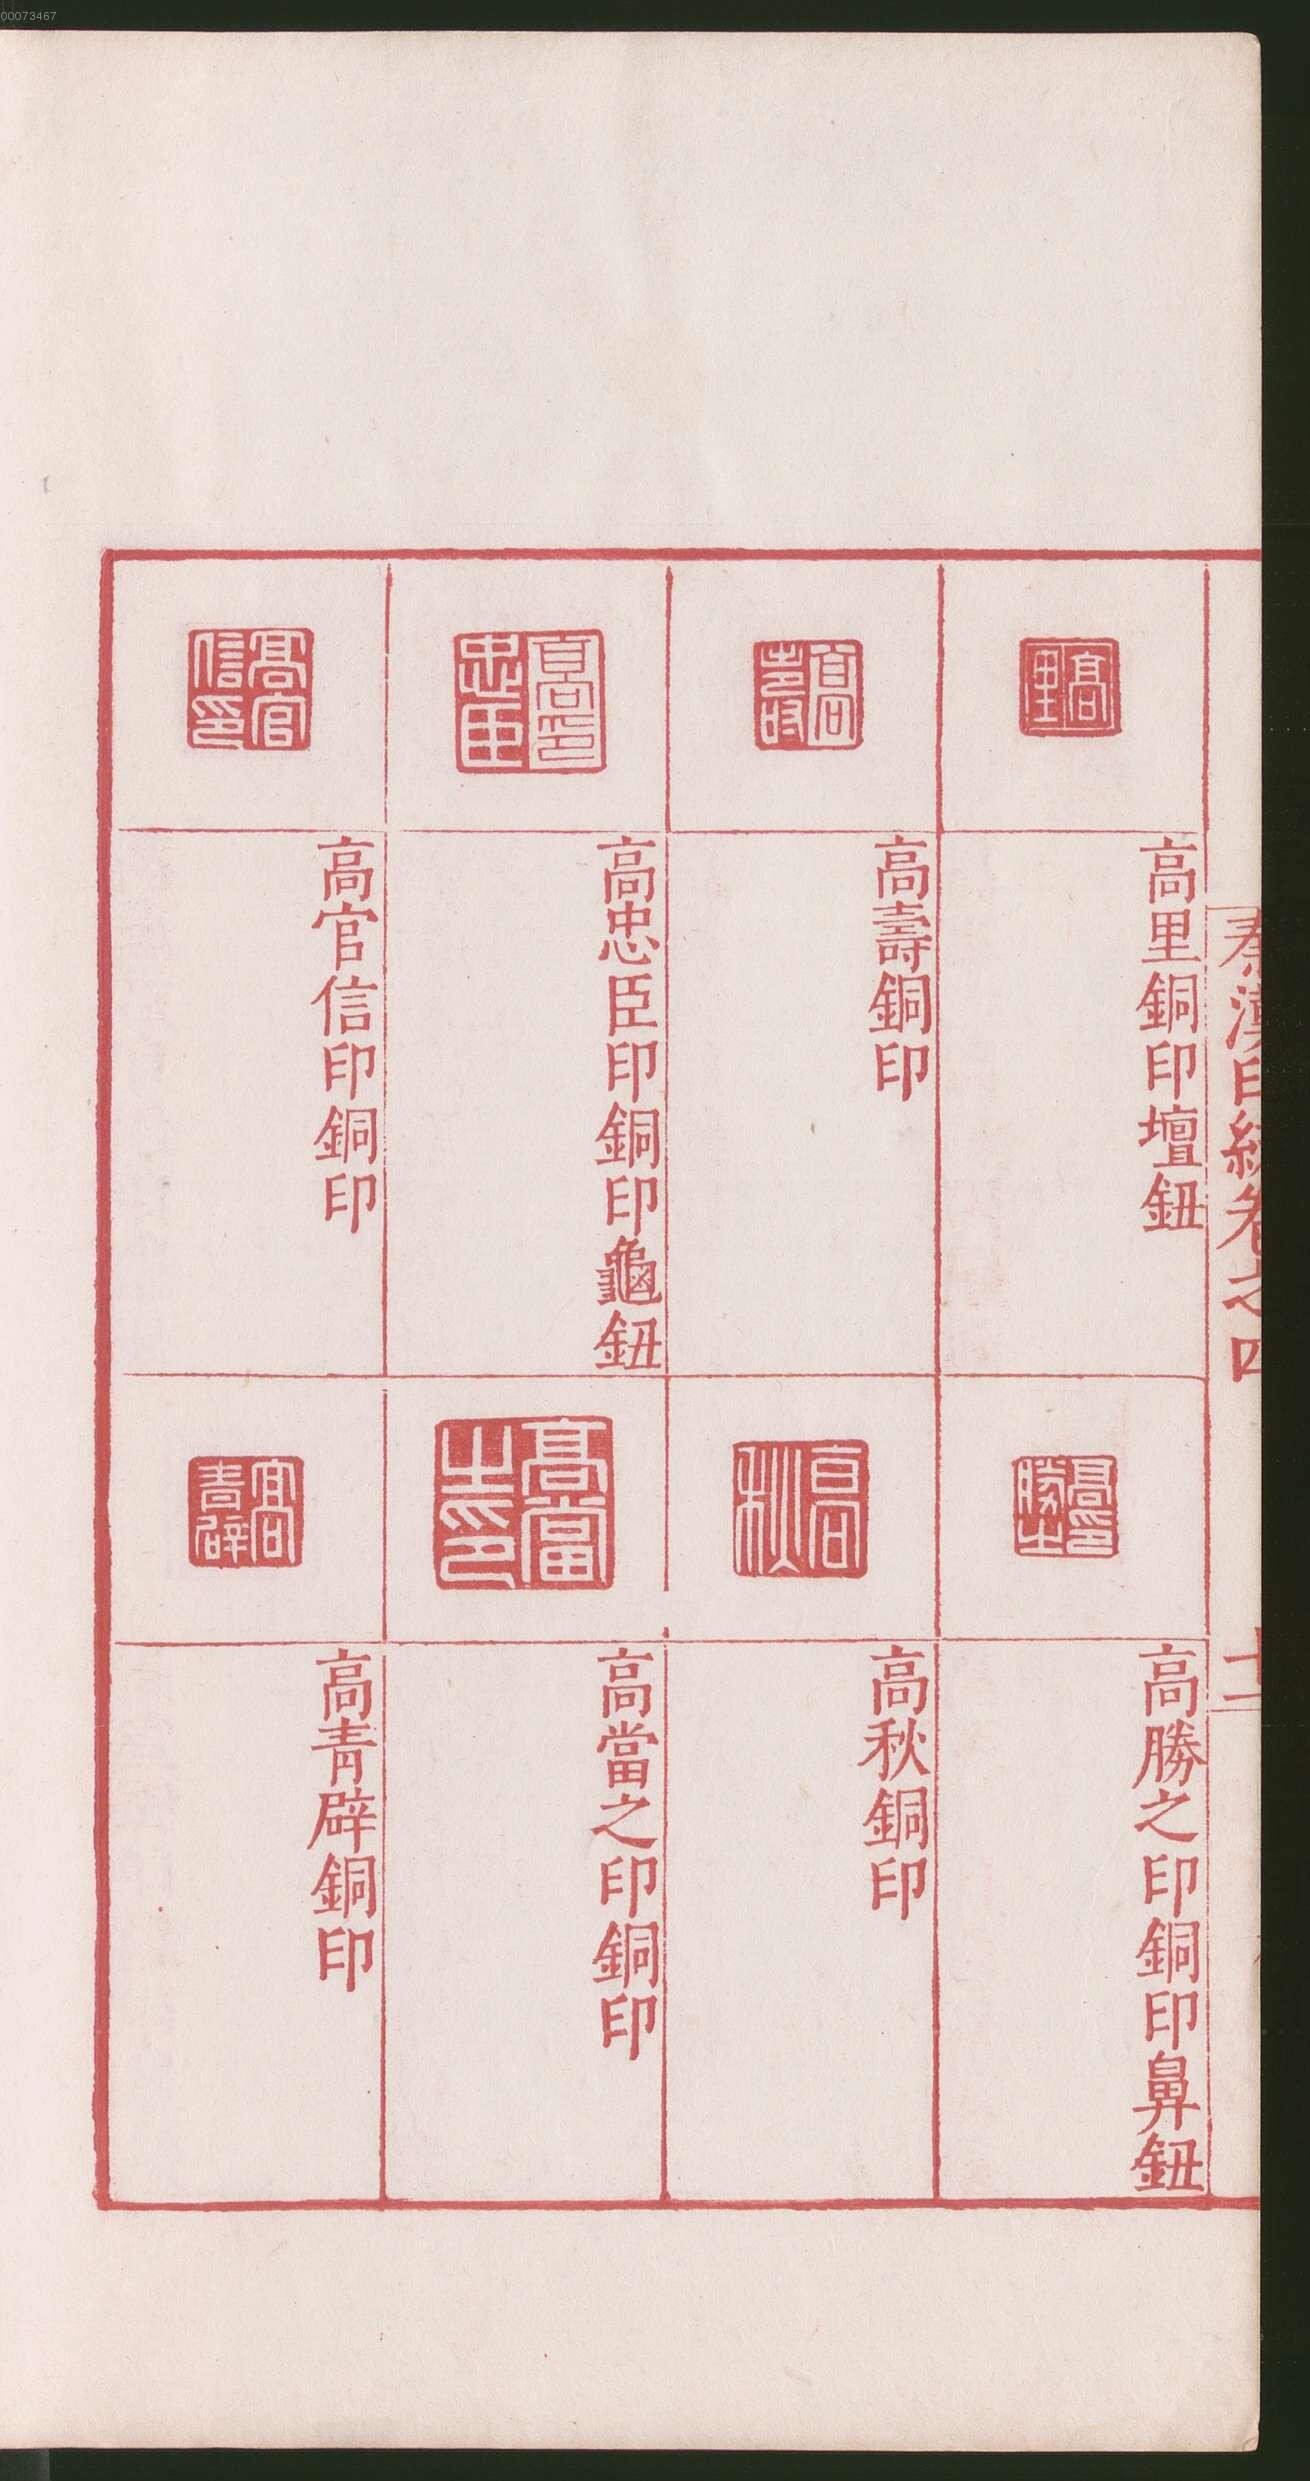 00073467
秦漢印統卷之四
十二
高里
高里銅印壇鈕
高印勝之
高勝之印銅印鼻鈕
高壽
高壽銅印
高秋
高秋銅印
高印忠臣
高忠臣印銅印龜鈕
高當之印
高當之印銅印
高官信印
高官信印銅印
高青辟
高青辟銅印